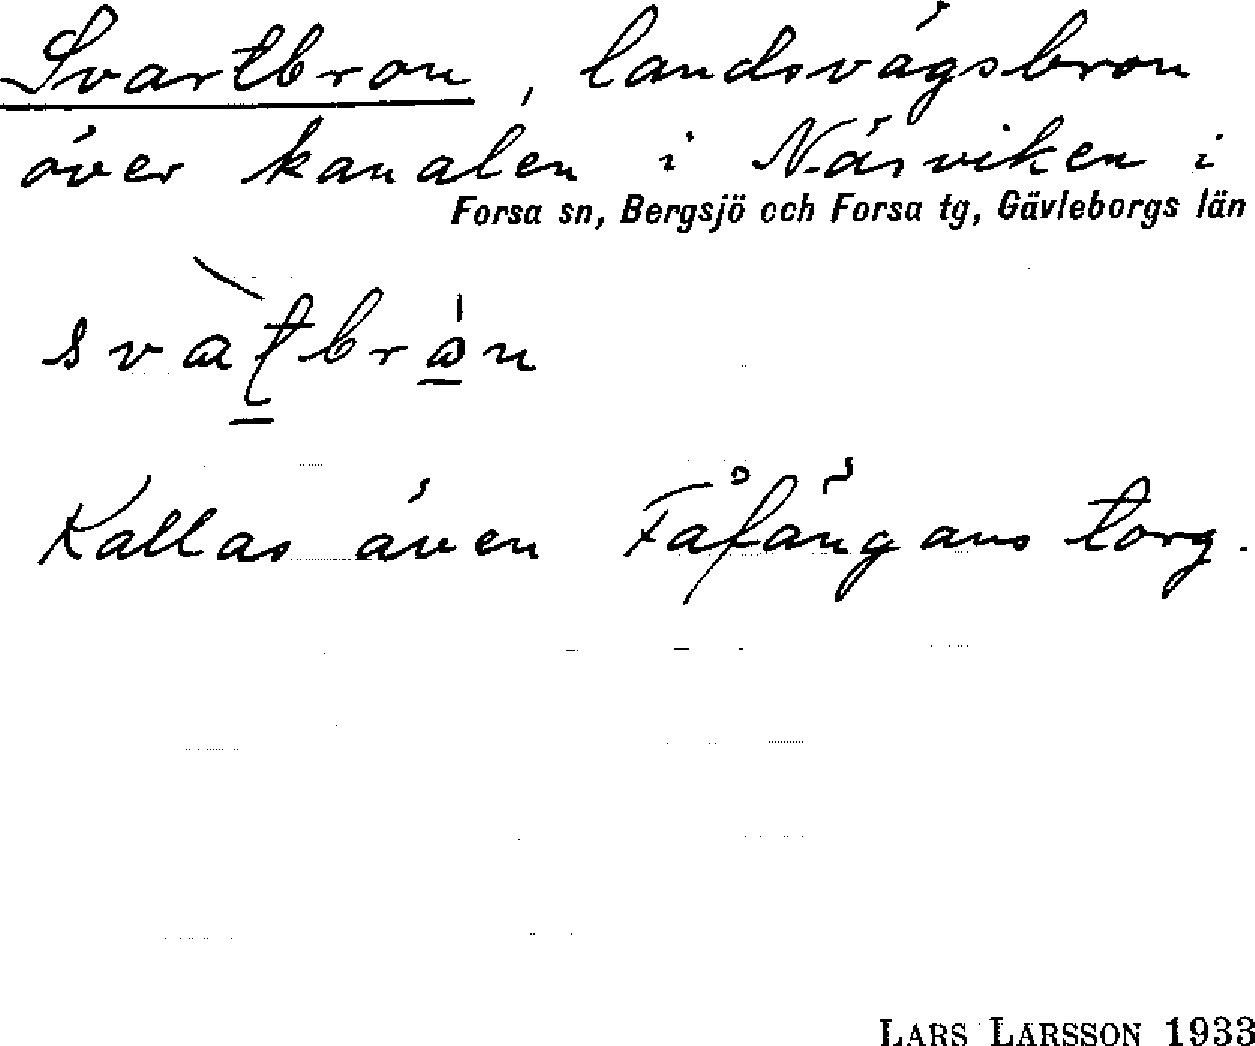 Svartbron, landsvägsbron
över kanalen i Näsviken i
Forsa sn, Bergsjö och Forsa tg, Gävleborgs län
Kallas även Fåfängans torg.
LARS LARSSON 1933